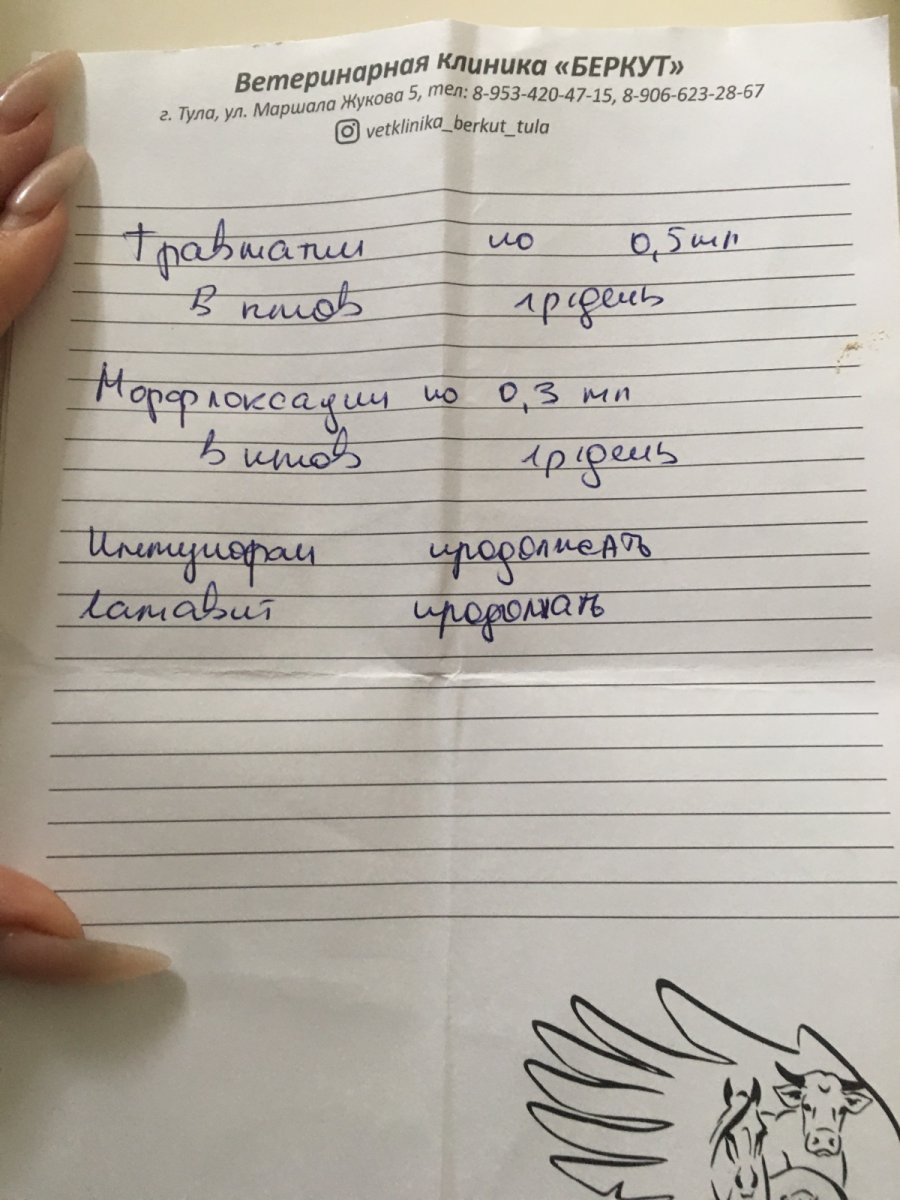 Ветеринарная клиника «БЕРКУТ»
г. Тула, ул. Маршала Жукова 5, тел: 8-953-420-47-15, 8-906-623-28-67
vetklinika_berkut_tula
Травматин по 0,5 мл
В 1р/день
Марфлоксацин по 0,3 мл
в 1р/день
продолжать
продолжать